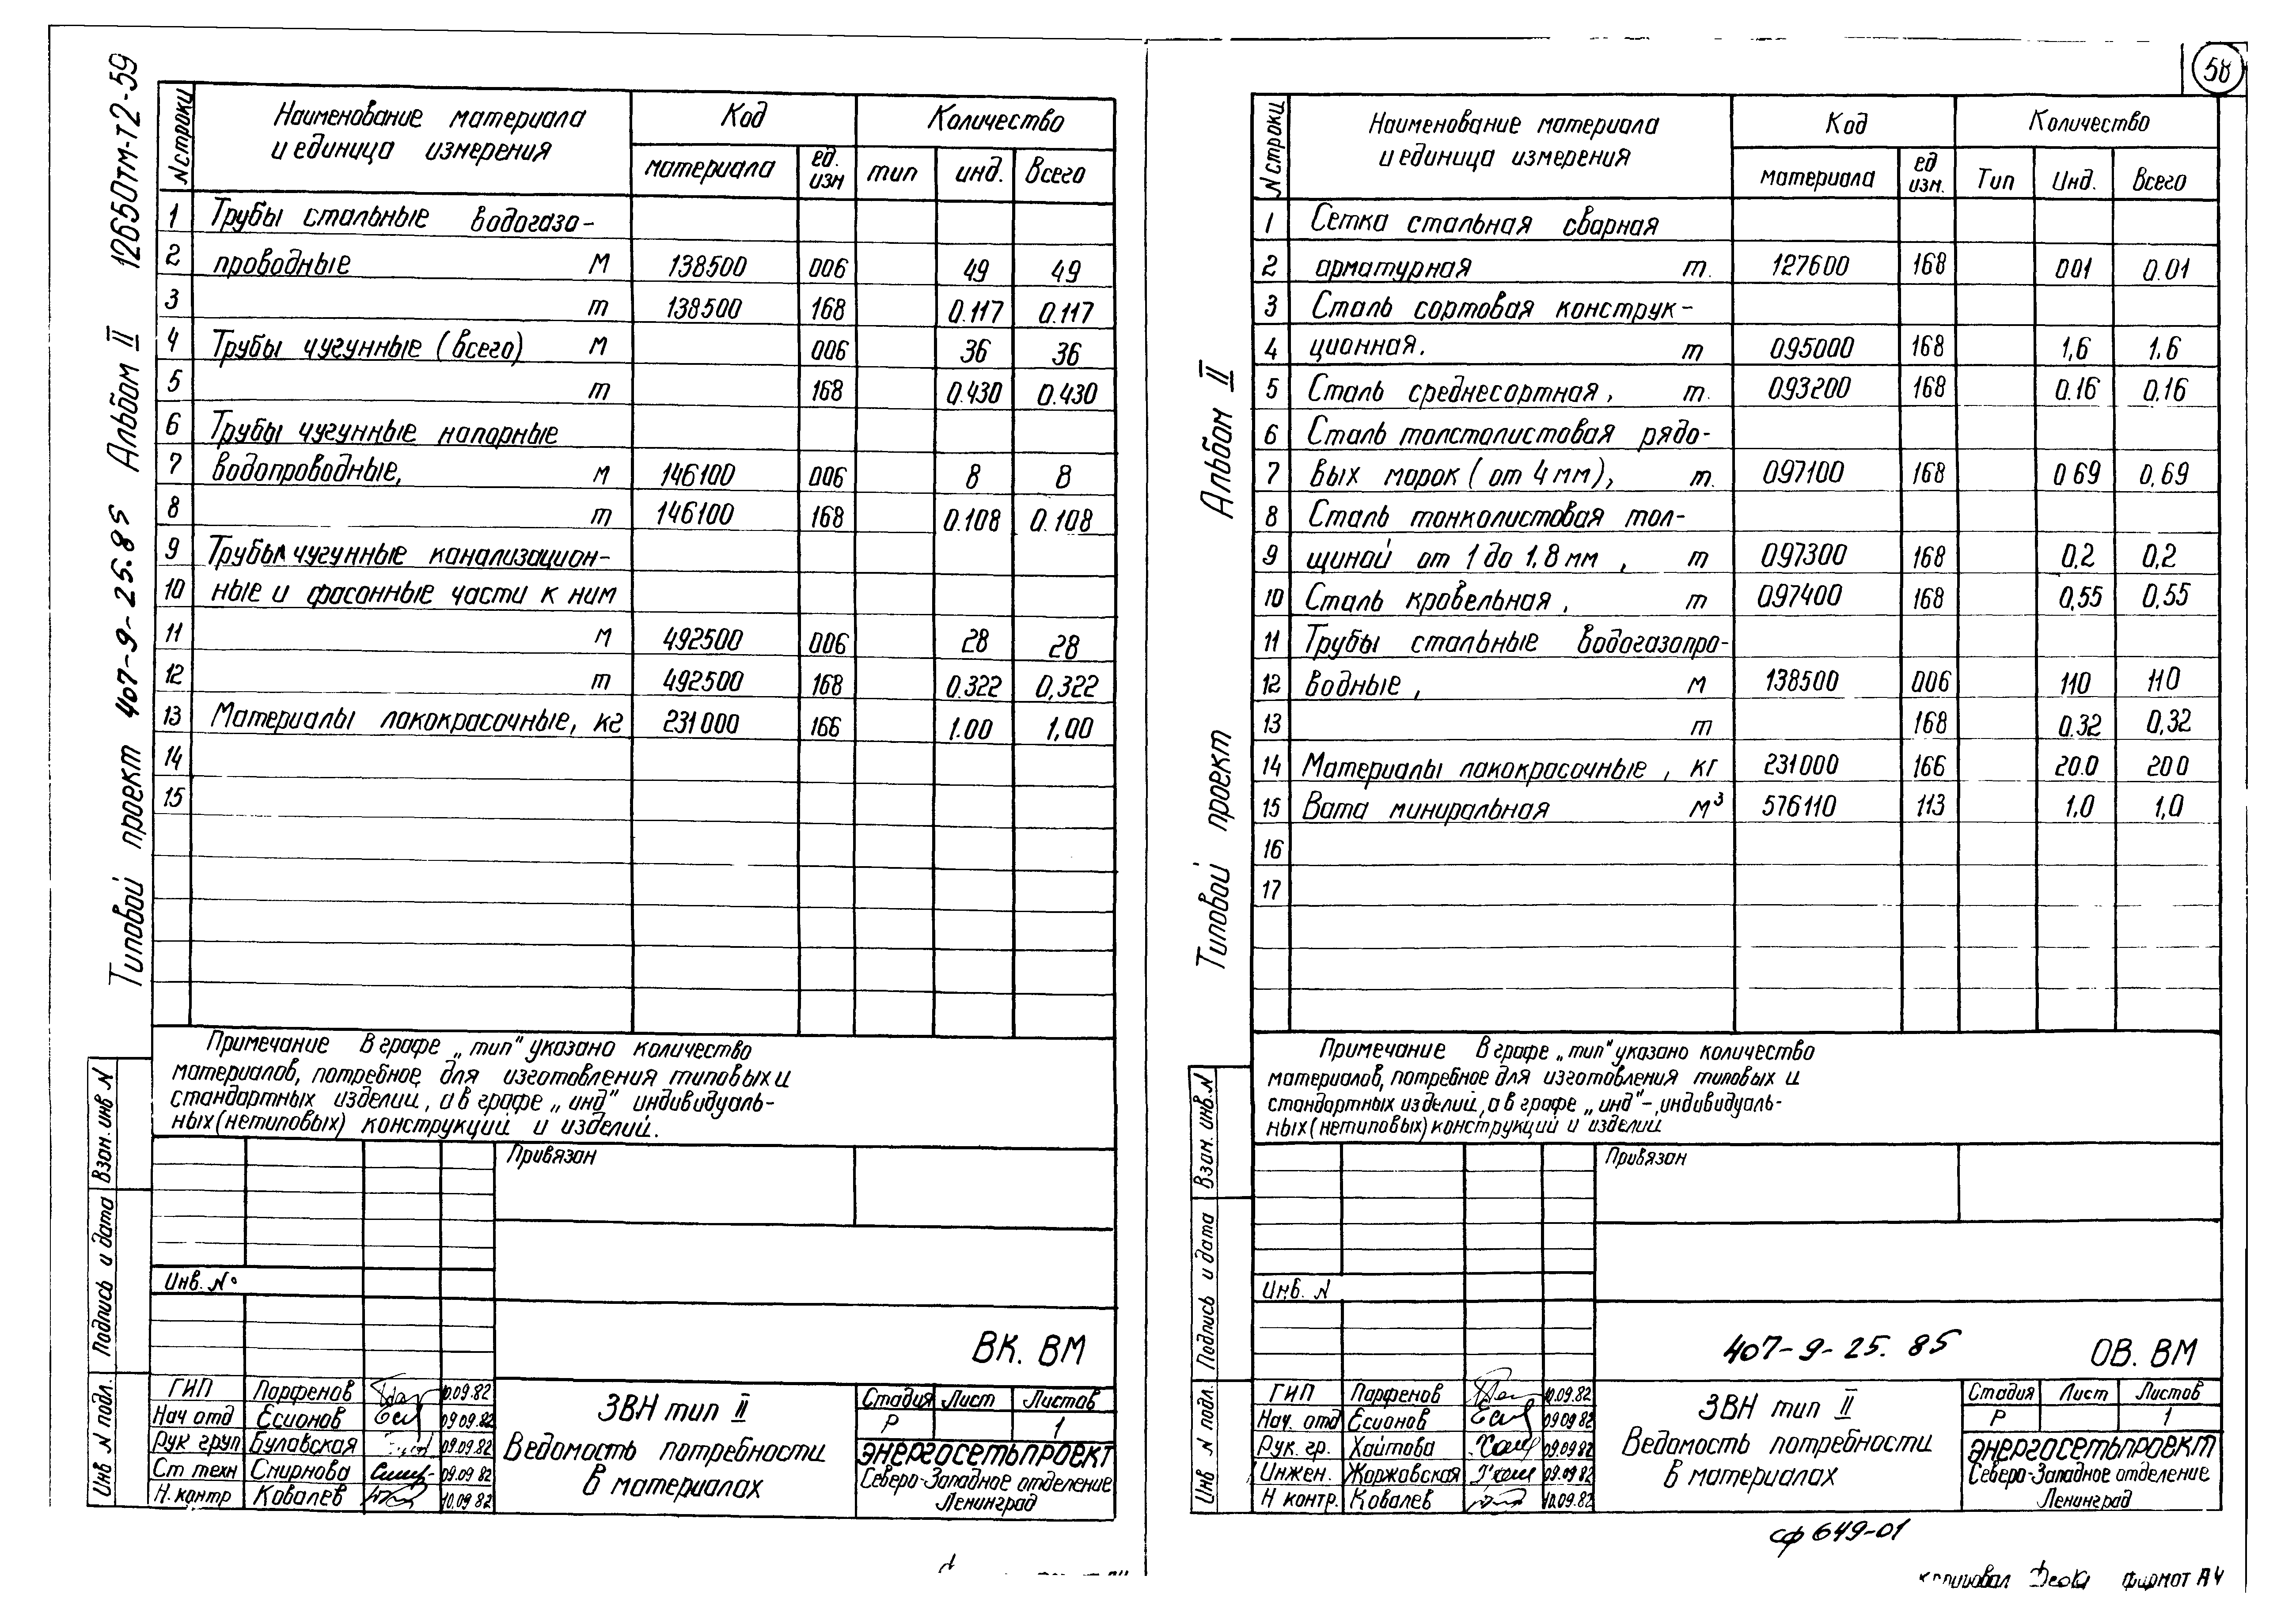 58
12650тм-т2-59
Альбом II
Типовой проект 407-9-25.85
N строки
Наименование материала
и единица измерения
Код
Количество
материала
ед.
изм
тип
инд.
Всего
1 Трубы стальные водогазо-
2 проводные м 138500 006 49 49
3 т 138500 168 0.117 0.117
4 Трубы чугунные (всего) м 006 36 36
5 т 168 0.430 0.430
6 Трубы чугунные напорные
7 водопроводные, м 146100 006 8 8
8 т 146100 168 0.108 0.108
9 Трубы чугунные канализацион-
10 ные и фасонные части к ним
11 м 492500 006 28 28
12 т 492500 168 0.322 0,322
13 Материалы лакокрасочные, кг 231000 166 1.00 1,00
14
15
Примечание В графе „тип" указано количество
материалов, потребное для изготовления типовых и
стандартных изделий, а в графе „инд" индивидуаль-
ных (нетиповых) конструкций и изделий.
Привязан
Инв. №
ВК. ВМ
Взам. инв N
Подпись и дата
Инв N подл.
ГИП Парфенов 10.09.82
Нач отд Есионов 09.09.82
Рук груп Булавская 09.09.82
Ст техн Смирнова 09.09 82
Н. контр Ковалев 10.09 82
ЗВН тип II
Ведомость потребности
в материалах
Стадия Лист Листов
Р 1
ЭНЕРГОСЕТЬПРОЕКТ
Северо-Западное отделение
Ленинград
Альбом II
Типовой проект
N строки
Наименование материала
и единица измерения
Код
Количество
материала
ед
изм.
Тип
Инд.
Всего
1 Сетка стальная сварная
2 арматурная т. 127600 168 001 0.01
3 Сталь сортовая конструк-
4 ционная. т 095000 168 1,6 1.6
5 Сталь среднесортная, т. 093200 168 0.16 0,16
6 Сталь толстолистовая рядо-
7 вых марок (от 4 мм), т. 097100 168 0 69 0,69
8 Сталь тонколистовая тол-
9 щиной от 1 до 1,8 мм, т 097300 168 0,2 0,2
10 Сталь кровельная, т 097400 168 0,55 0,55
11 Трубы стальные водогазопро-
12 водные, м 138500 006 110 110
13 т 168 0.32 0,32
14 Материалы лакокрасочные, кг 231000 166 20.0 20 0
15 Вата миниральная м³ 576110 113 1,0 1,0
16
17
Примечание В графе „тип" указано количество
материалов, потребное для изготовления типовых и
стандартных изделий, а в графе „инд"-, индивидуаль-
ных (нетиповых) конструкций и изделий
Привязан
Инв. N
407-9-25.85 ОВ. ВМ
Взам. инв. N
Подпись и дата
Инв N подл.
ГИП Парфенов 10.09.82
Нач. отд Есионов 09.09 82
Рук. гр. Хаитова 09.09.82
Инжен. Жоржавская 09.09.82
Н контр. Ковалев 10.09.82
ЗВН тип II
Ведомость потребности
в материалах
Стадия Лист Листов
Р 1
ЭНЕРГОСЕТЬПРОЕКТ
Северо-Западное отделение
Ленинград
сф 649-01
копировал формат А4